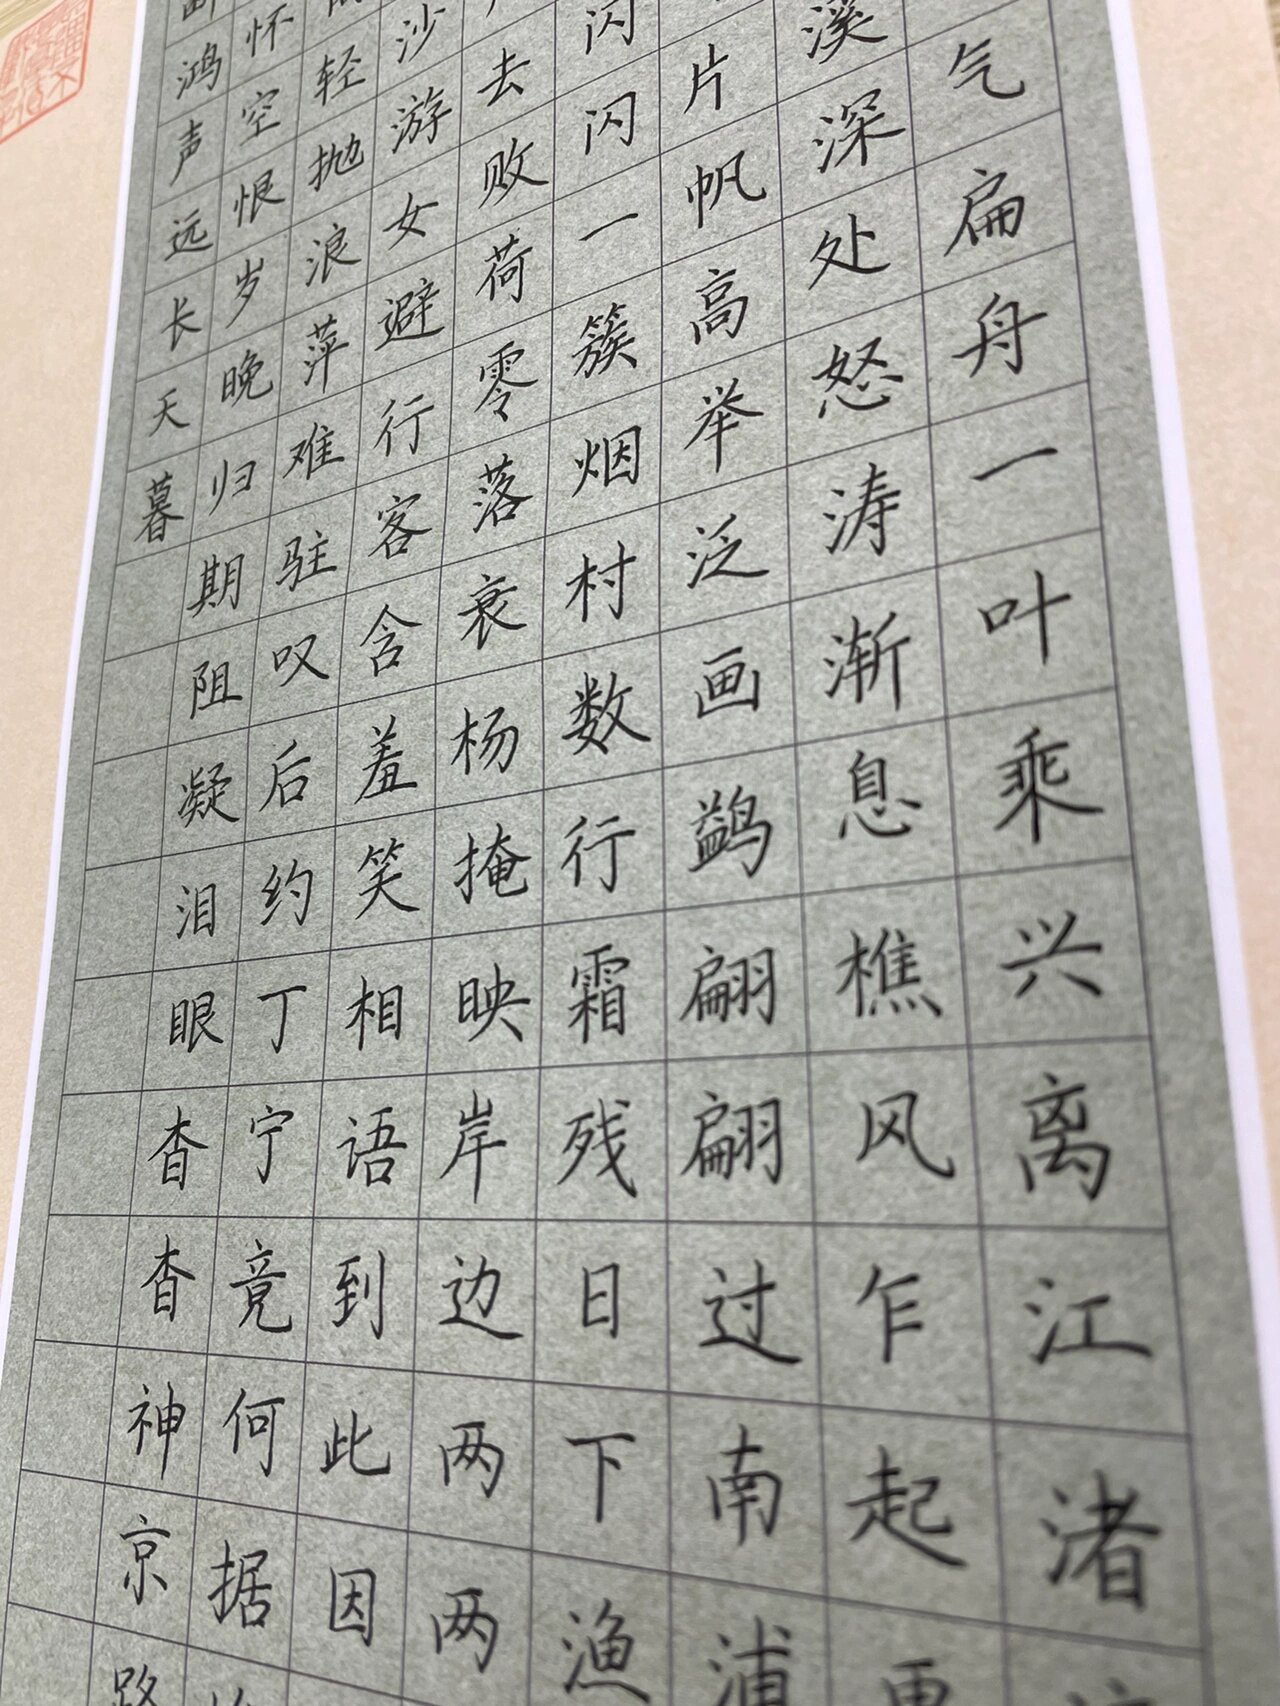 气扁舟一叶乘兴离江渚
溪深处怒涛渐息樵风乍起更
片帆高举泛画鹢翩翩过南浦
闪闪一簇烟村数行霜残日下渔
去败荷零落衰杨掩映岸边两两
沙游女避行客含羞笑相语到此因
轻抛浪萍难驻叹后约丁宁竟何据
怀空恨岁晚归期阻凝泪眼杳杳神京路
鸿声远长天暮